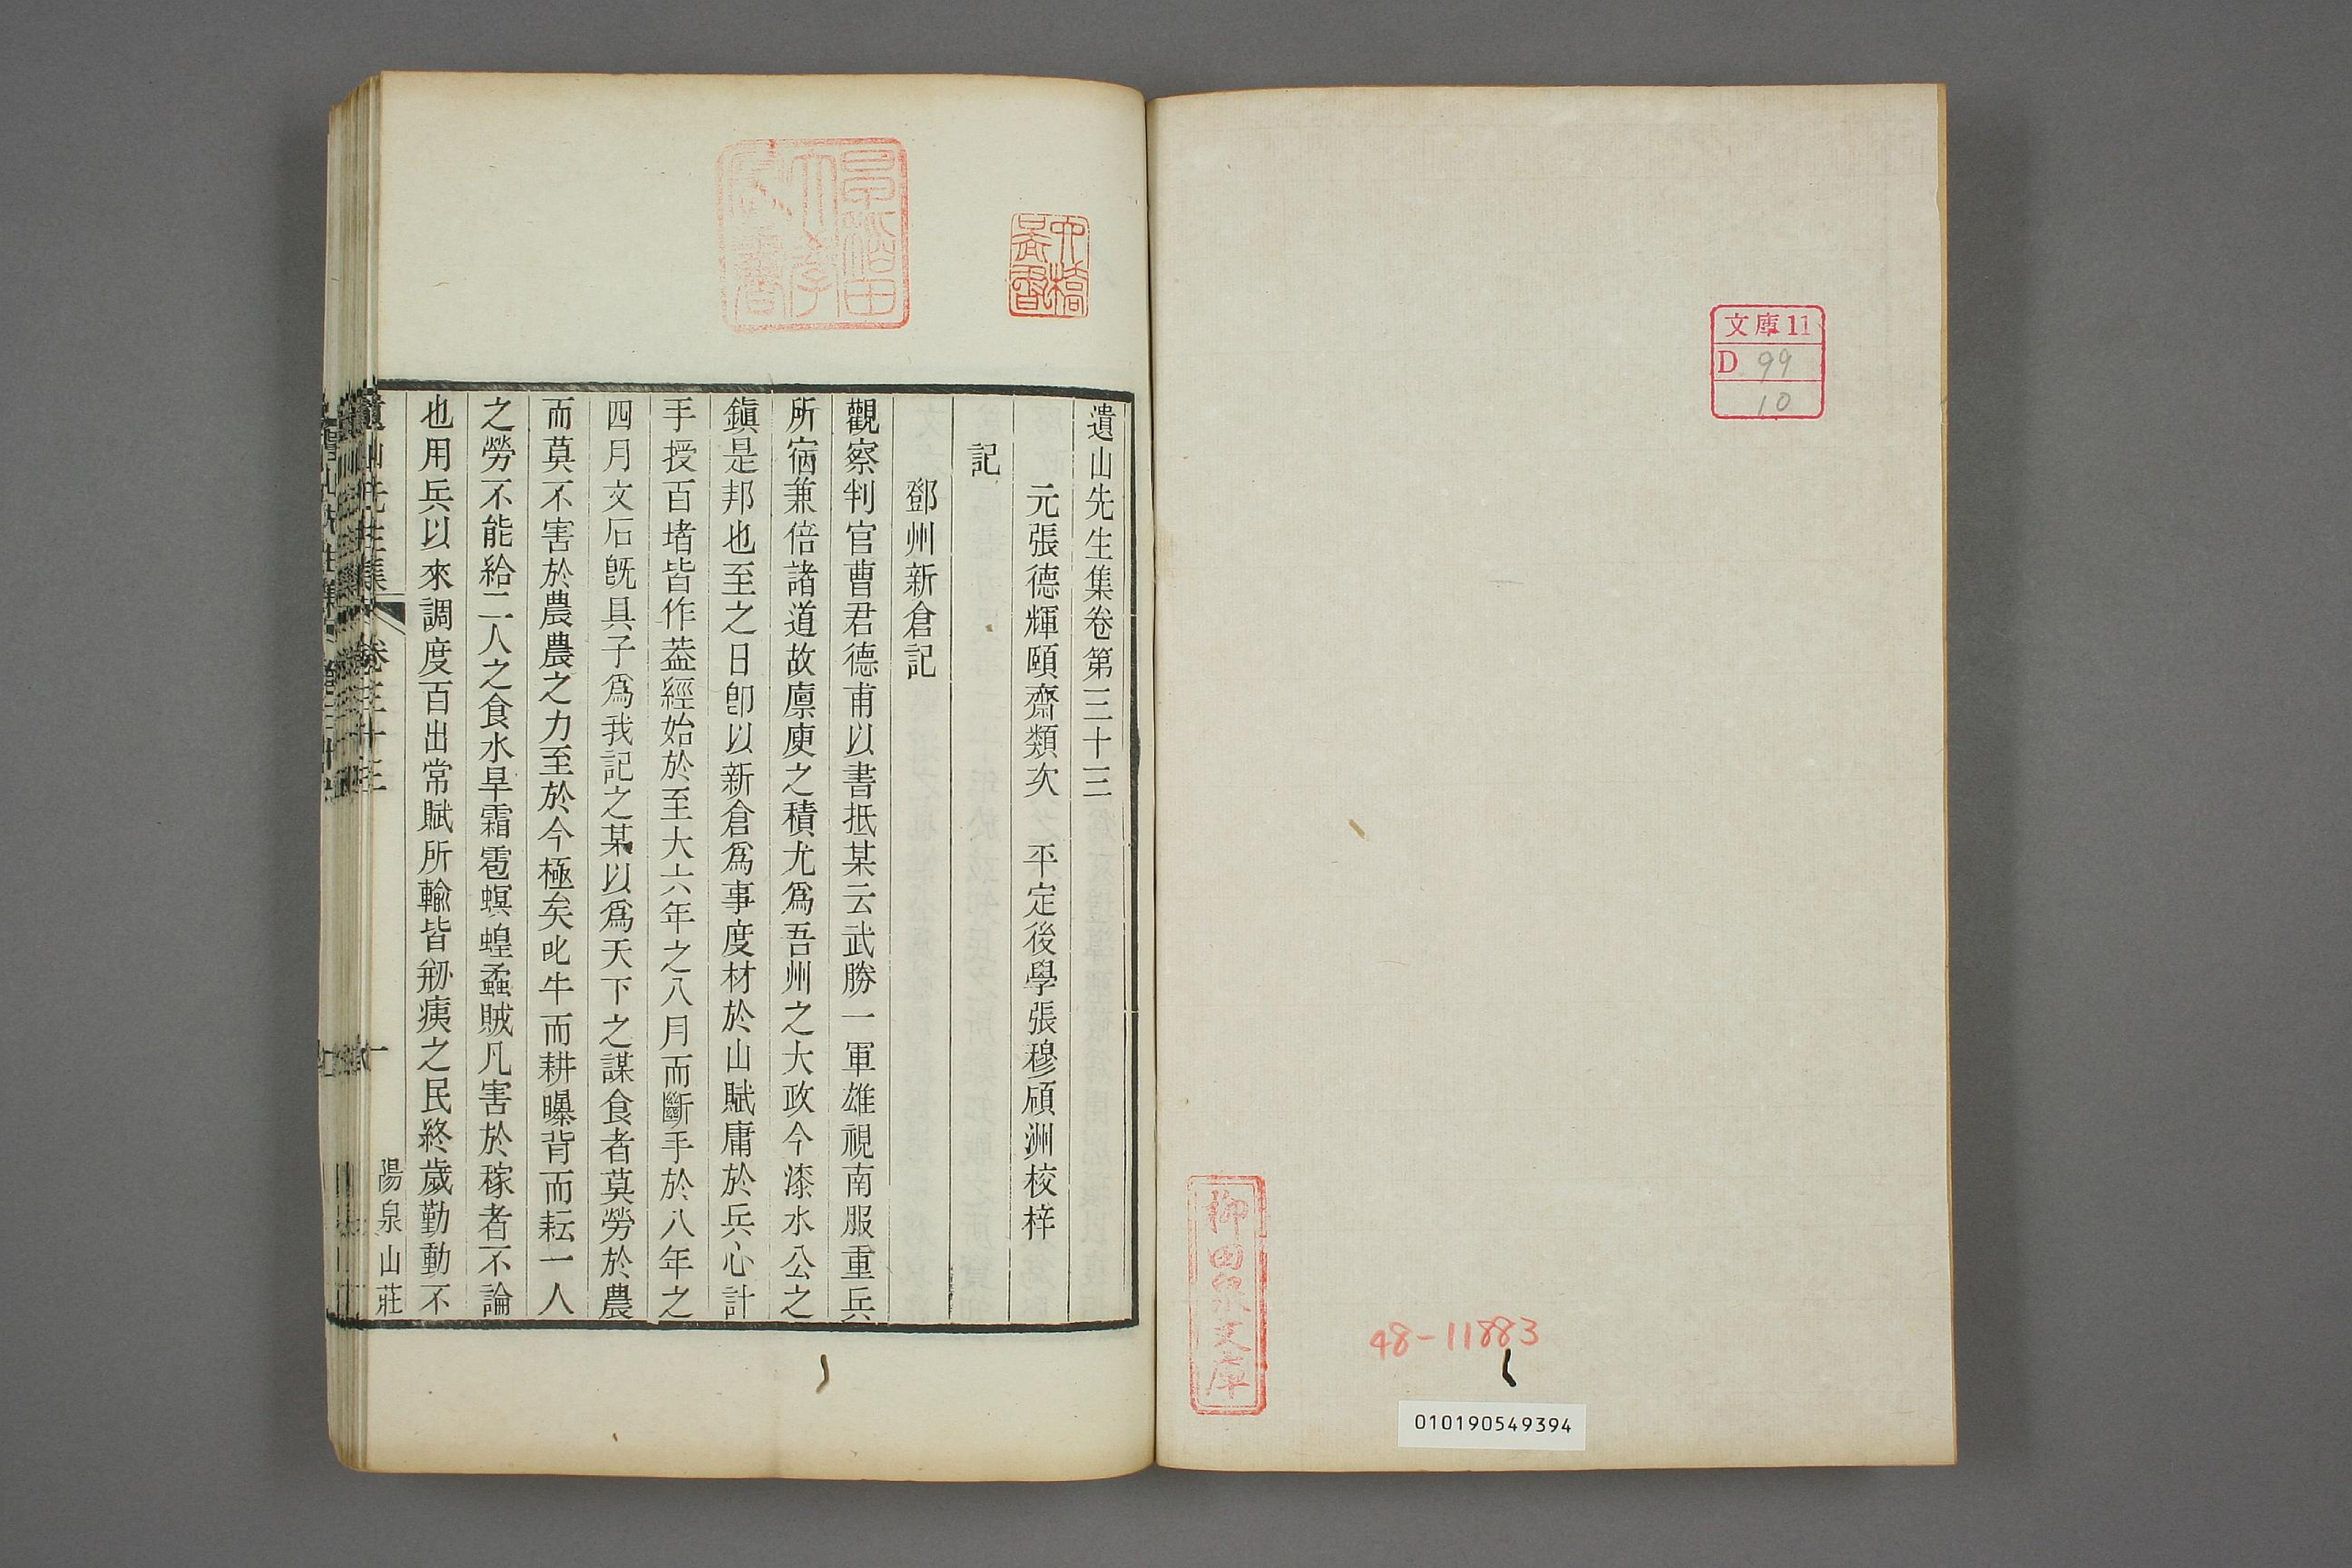 文庫11
D 99
10
柳田泉文庫
48-11883
010190549394
早稲田大學圖書
遺山先生集卷第三十三
元張德輝頤齋類次 平定後學張穆碩洲校梓
記
鄧州新倉記
觀察判官曹君德甫以書抵某云武勝一軍雄視南服重兵
所宿兼倍諸道故廪庾之積尤爲吾州之大政今漆水公之
鎭是邦也至之日卽以新倉爲事度材於山賦庸於兵心計
手授百堵皆作葢經始於至大六年之八月而斷手於八年之
四月文石旣具子爲我記之某以爲天下之謀食者莫勞於農
而莫不害於農農之力至於今極矣叱牛而耕曝背而耘一人
之勞不能給二人之食水旱霜雹螟蝗蟊賊凡害於稼者不論
也用兵以來調度百出常賦所輸皆剏痍之民終歲勤動不
遺山先生集 卷三十三 一
陽泉山莊